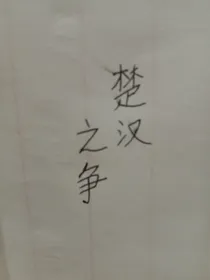 楚汉
之争